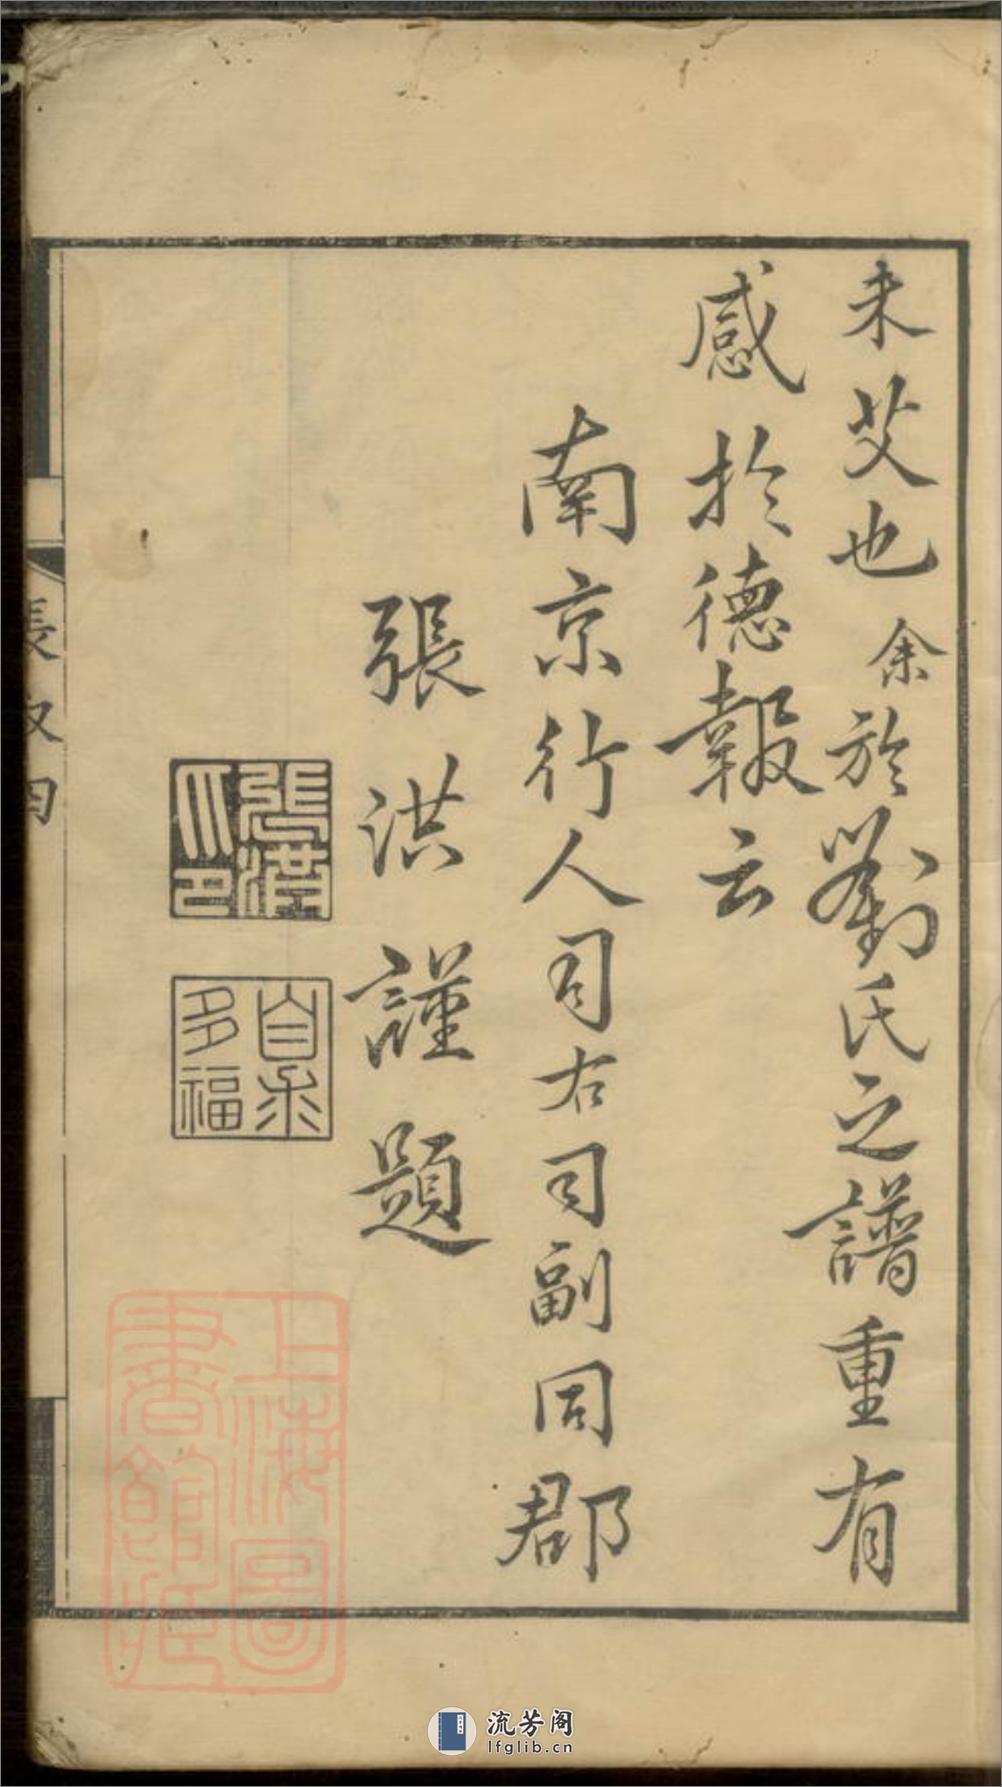 未艾也余於劉氏之譜重有
感於德報云
南京行人司右司副同郡
張洪謹題
張洪之印
自求多福
張叙四
上海圖書館藏
流芳阁
lfglib.cn